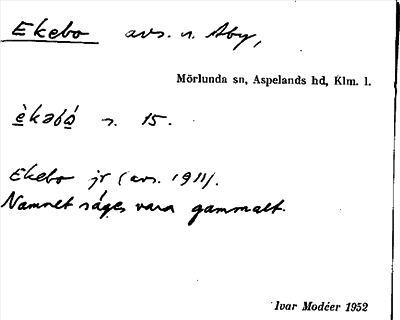 Ekebo avs. n. Åby,
Mörlunda sn, Aspelands hd, Klm. l.
s. 15.
Ekebo jr (avs. 1911).
Namnet säges vara gammalt.
Ivar Modéer 1952